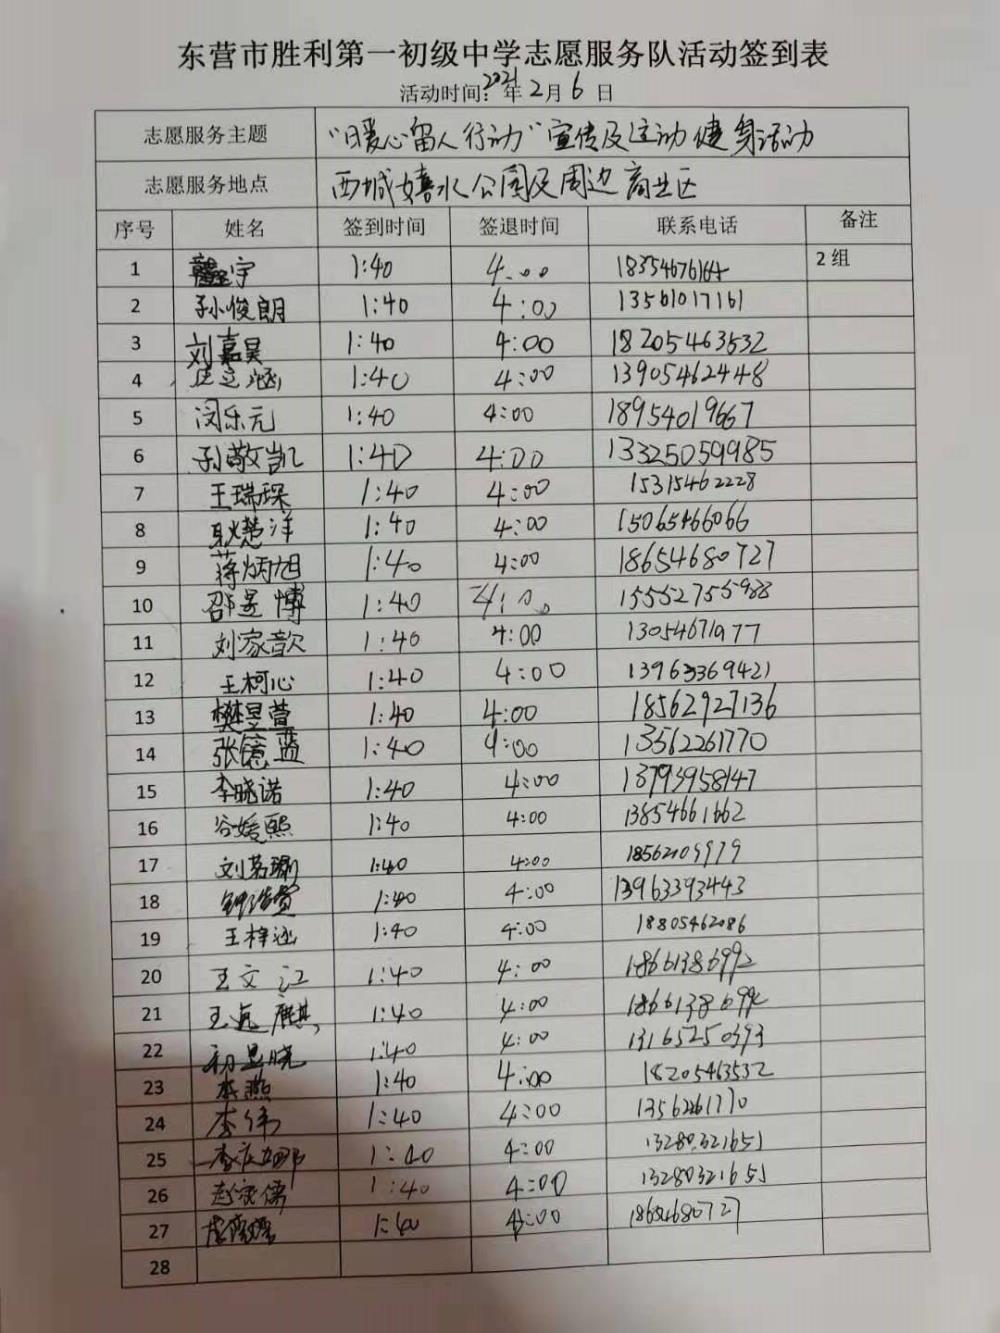 东营市胜利第一初级中学志愿服务队活动签到表
活动时间:2021年2月6日
志愿服务主题 “暖心留人行动”宣传及运动健身活动
志愿服务地点 西城嬉水公园及周边商业区
序号 姓名 签到时间 签退时间 联系电话 备注
1 宇 1:40 4:00 2组
2 孙俊朗 1:40 4:00 13561017161
3 刘嘉昊 1:40 4:00 18205463532
4 涵 1:40 4:00 13905462448
5 闵乐元 1:40 4:00 18954019667
6 孙敬凯 1:40 4:00 13325059985
7 王瑞琛 1:40 4:00 15315462228
8 耿楚洋 1:40 4:00 15065466066
9 蒋炳旭 1:40 4:00 18654680727
10 邵昱博 1:40 4:00 15552755988
11 刘家歆 1:40 4:00 13054671977
12 王柯心 1:40 4:00 13963369421
13 樊昱萱 1:40 4:00 18562927136
14 张亿蓝 1:40 4:00 13562261770
15 李晓诺 1:40 4:00 13793958147
16 谷媛熙 1:40 4:00 13854661662
17 刘茗 1:40 4:00
18 1:40 4:00 13963393443
19 王梓涵 1:40 4:00 18805462086
20 王文江 1:40 4:00 18661386992
21 王 麒 1:40 4:00 18661386992
22 初显晓 1:40 4:00
23 李燕 1:40 4:00 18205463532
24 李伟 1:40 4:00 1356261770
25 李庆娜 1:40 4:00 13280321651
26 赵 儒 1:40 4:00 13280321651
27 1:40 4:00 18654680727
28